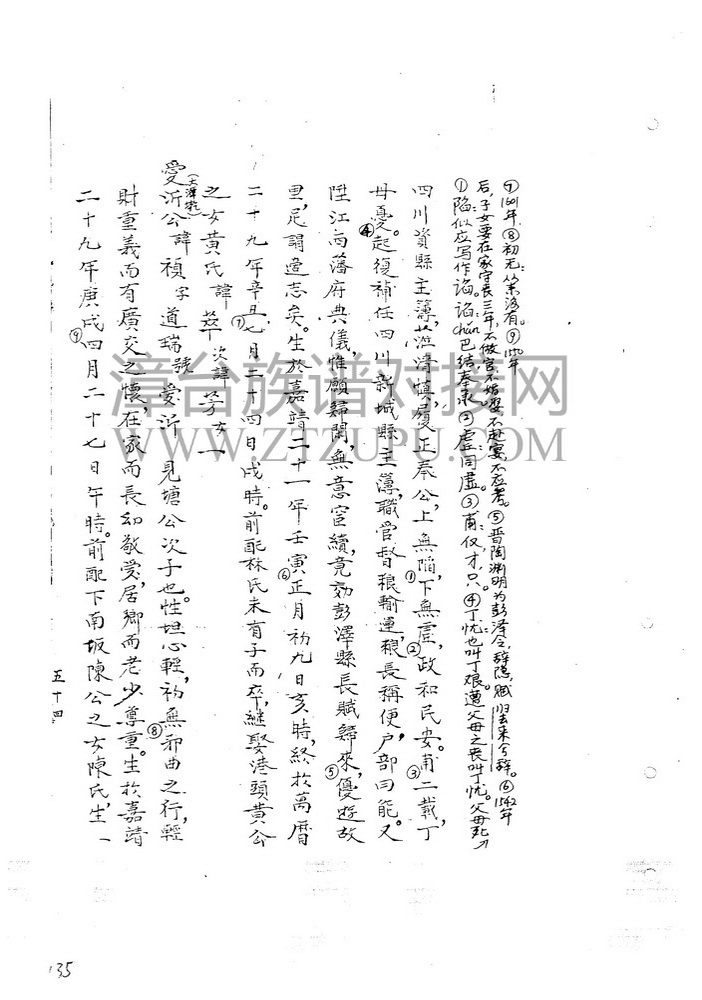 四川資縣主簿，蒞清慎，履正奉公，上無陷①，下無虐②，政和民安。甫③二載，丁
母憂④。起復補任四川新城縣主薄，職官督粮輸運，粮長稱便，户部曰能。又
陞江西藩府典儀，惟願歸閑，無意宦績，竟効彭澤縣長賦歸來⑤，優遊故
里，足謂遂志矣。生於嘉靖二十一年壬寅⑥正月初九日亥時，終於萬曆
二十九年辛丑⑦七月二十四日戌時。前配林氏未有子而卒，継娶港頭黃公
之女黃氏諱華次諱芳女一
愛沂公諱禎字道瑞號愛沂見塘公次子也。性坦心輕，初⑧無邪曲之行，輕
財重義而有廣交之懷，在家而長幼敬愛，居鄉而老少尊重。生於嘉靖
二十九年庚戌⑨四月二十七日午時。前配下南坂陳公之女陳氏，生一
①陷：似应写作谄。谄chǎn巴结奉承②虐同虚。③甫：仅，才，只。④丁忧：也叫丁艰。遭父母之丧叫丁忧。父母死
后，子女要在家守丧三年，不做官不婚娶，不赴宴，不应考。⑤晋陶渊明为彭泽令，辞隐，赋归去来兮辞。⑥1542年
⑦1601年⑧初无：从来没有。⑨1550年
五十四
135
漳台族谱对接网
WWW.ZTZUPU.COM